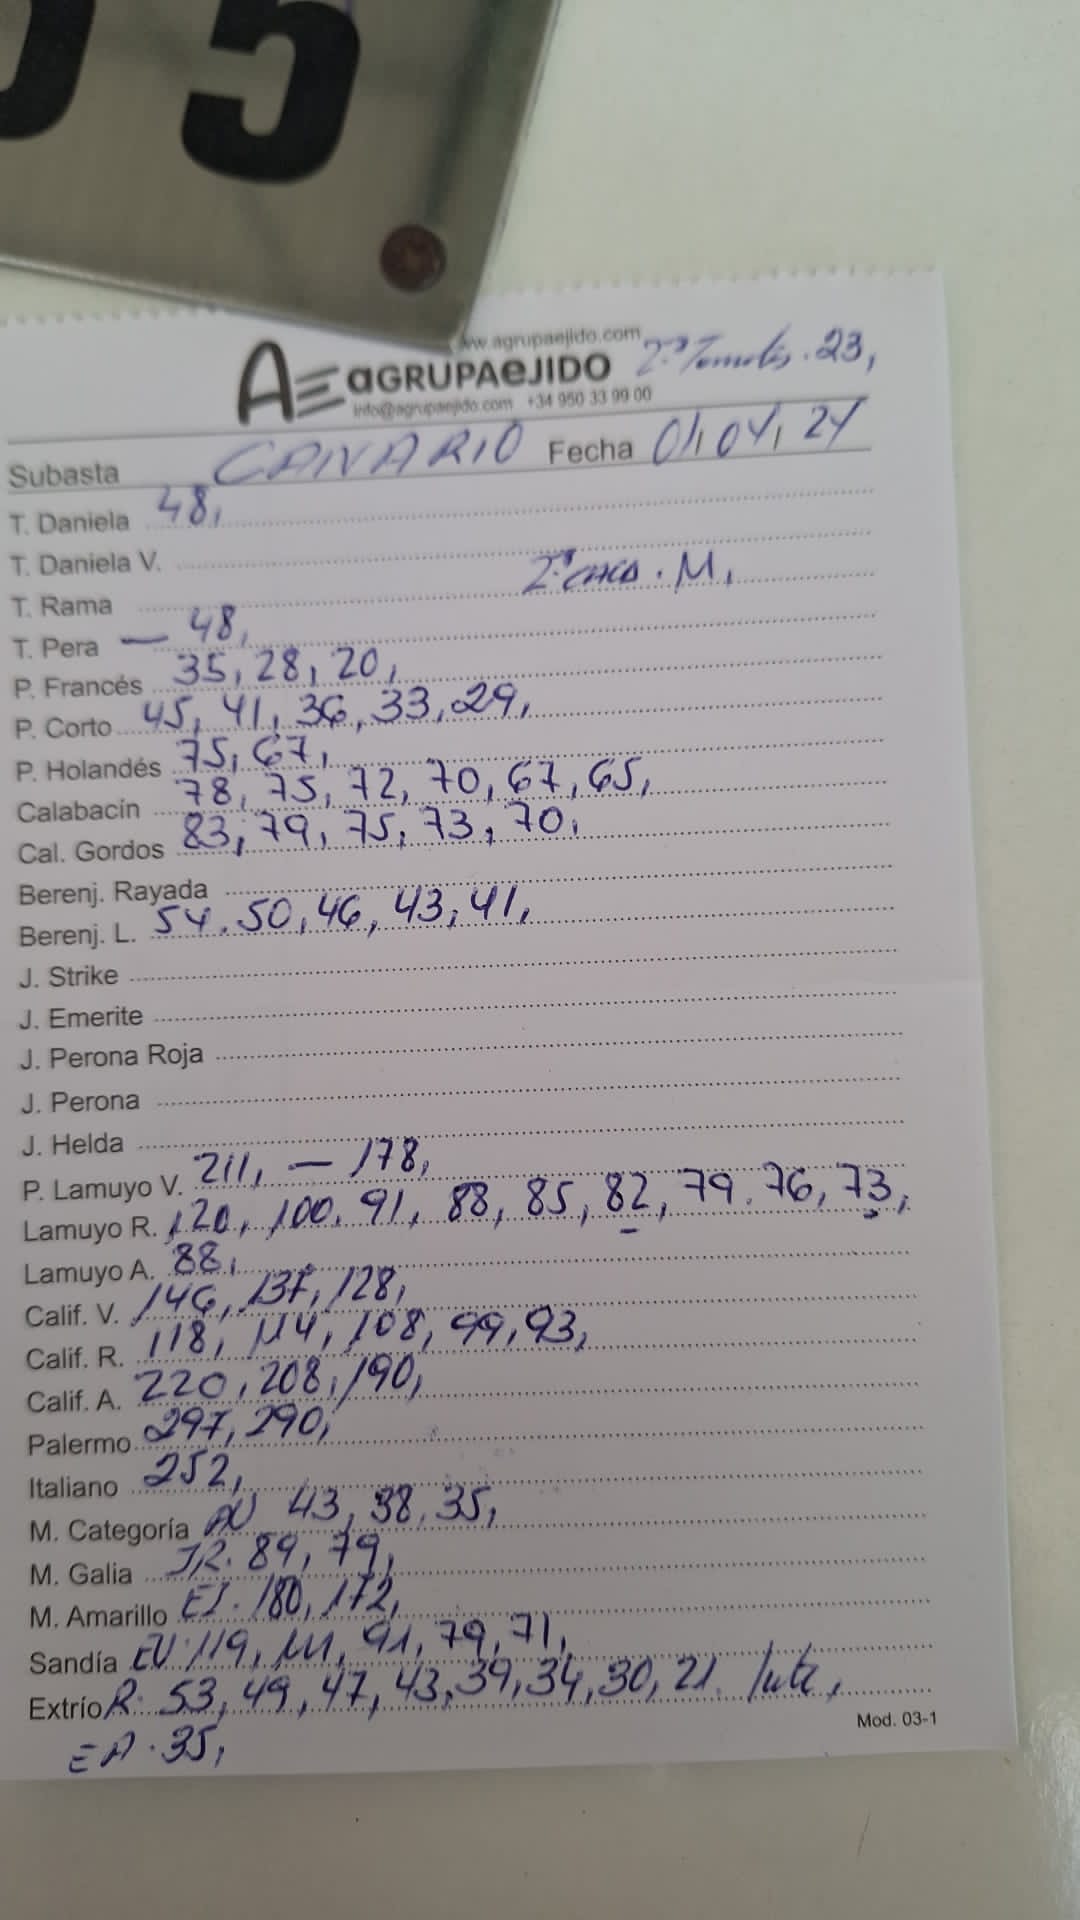 5
www.agrupaejido.com
AGRUPAEJIDO 2ª Tomates. 23,
info@agrupaejido.com +34 950 33 99 00
Subasta CANARIO Fecha 01, 04, 24
T. Daniela 48,
T. Daniela V.
T. Rama 2ª . M,
T. Pera — 48,
P. Francés 35, 28, 20,
P. Corto 45, 41, 36, 33, 29,
P. Holandés 75, 67,
Calabacín 78, 75, 72, 70, 67, 65,
Cal. Gordos 83, 79, 75, 73, 70,
Berenj. Rayada
Berenj. L. 54. 50, 46, 43, 41,
J. Strike
J. Emerite
J. Perona Roja
J. Perona
J. Helda
P. Lamuyo V. 211, — 178,
Lamuyo R. 120, 100, 91, 88, 85, 82, 79. 76, 73,
Lamuyo A. 88,
Calif. V. 146, 137, 128,
Calif. R. 118, 114, 108, 99, 93,
Calif. A. 220, 208, 190,
Palermo 297, 290,
Italiano 252,
M. Categoría 43, 38, 35,
M. Galia JR. 89, 79,
M. Amarillo EJ. 180, 172,
Sandía EV. 119, 111, 91, 79, 71,
Extrío R. 53, 49, 47, 43, 39, 34, 30, 21.
EA. 35,
Mod. 03-1